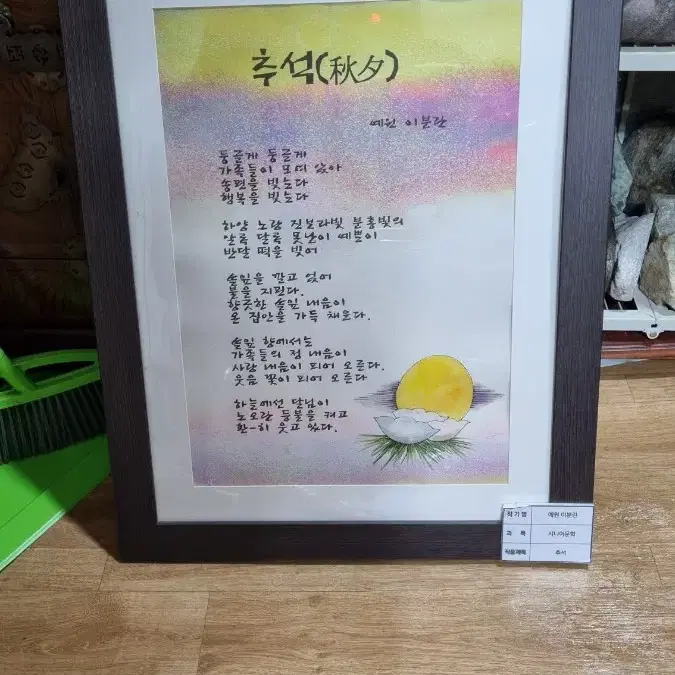 추석(秋夕)
예원 이분란
둥글게 둥글게
가족들이 모여 앉아
송편을 빚는다
행복을 빚는다
하양 노랑 진보라빛 분홍빛의
알록 달록 못난이 예쁜이
반달 떡을 빚어
솔잎을 깔고 얹어
불을 지핀다.
향긋한 솔잎 내음이
온 집안을 가득 채운다.
솔잎 향에서는
가족들의 정 내음이
사랑 내음이 되어 오른다.
웃음 꽃이 되어 오른다
하늘에선 달님이
노오란 등불을 켜고
환-히 웃고 있다.
작가명 예원 이분란
과 목 시니어문학
작품제목 추석